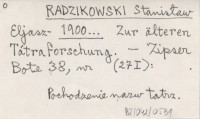 RADZIKOWSKI Stanisław
Eljasz- 1900... Zur älteren
Tátraforschung. — Zipser
Bote 38, nr (27I):
Pochodzenie nazw tatrz.